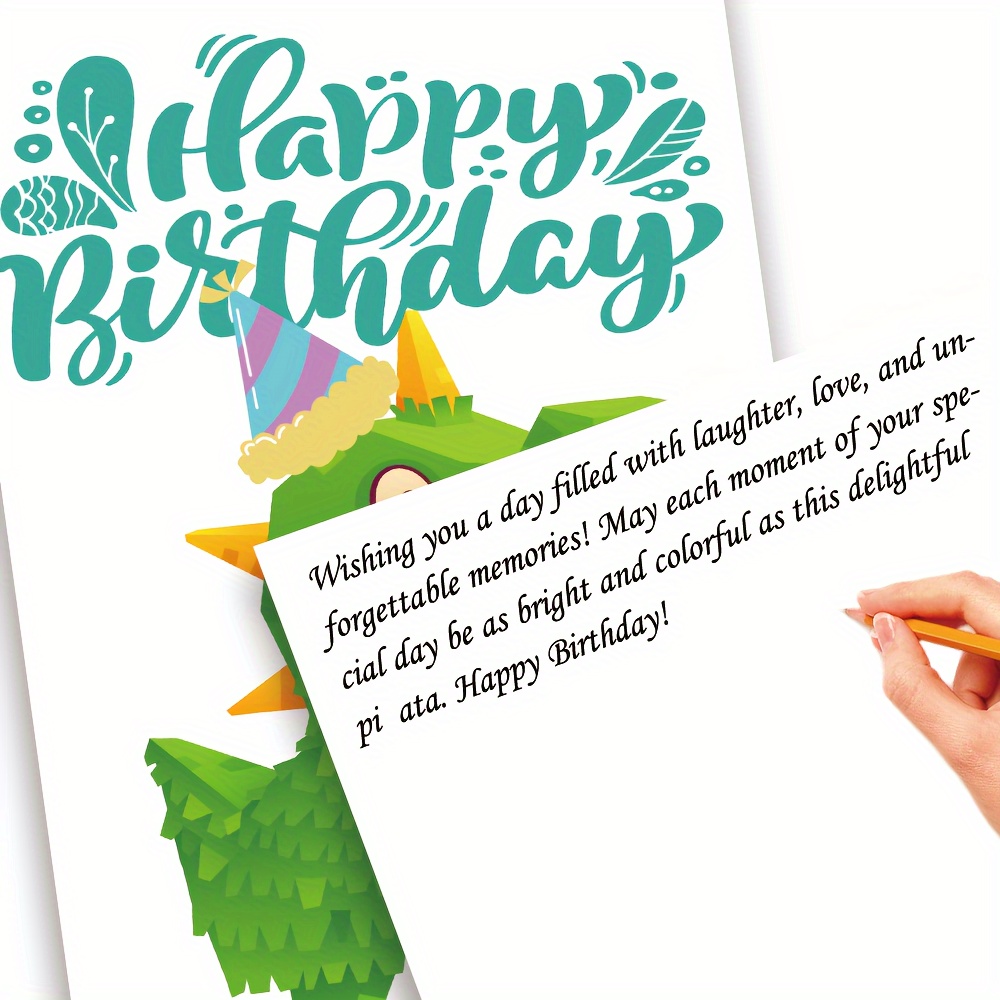 Happy
Birthday
Wishing you a day filled with laughter, love, and un-
forgettable memories! May each moment of your spe-
cial day be as bright and colorful as this delightful
pi ata. Happy Birthday!